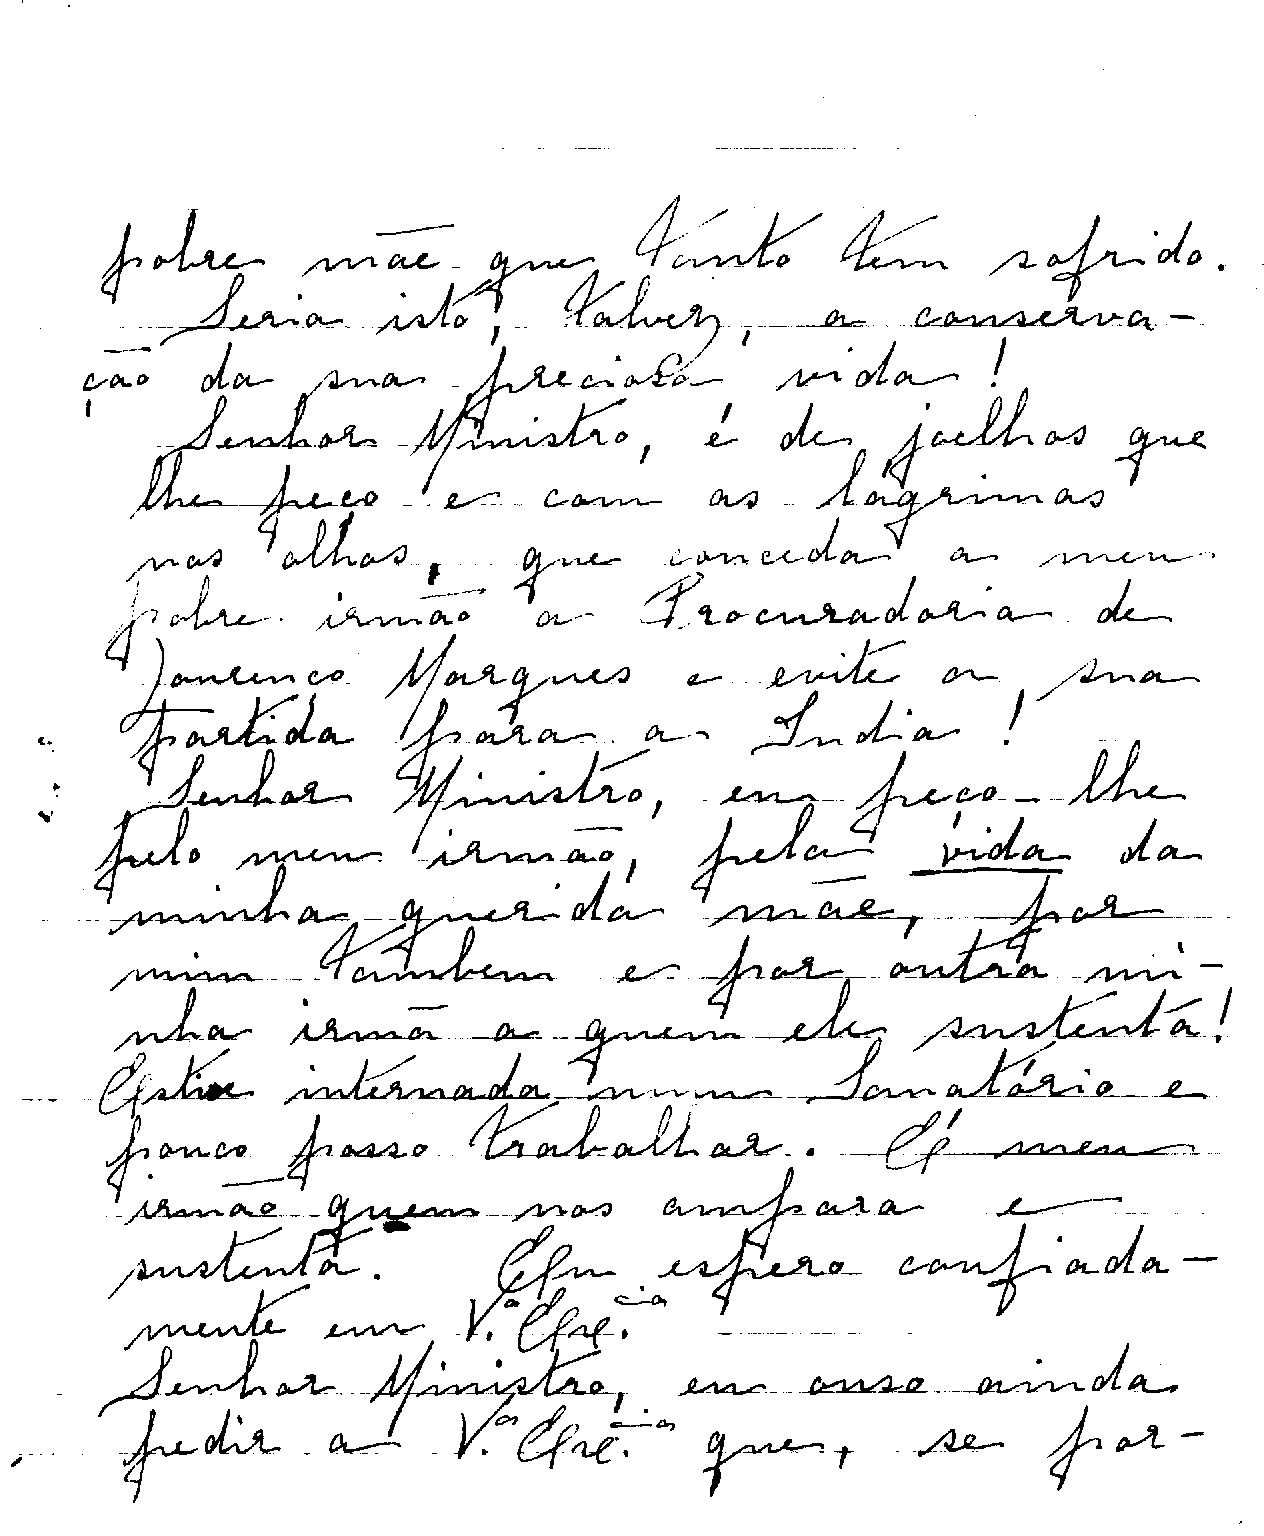 pobre mãe que tanto tem sofrido.
Seria isto, talvez, a conserva-
ção da sua preciosa vida!
Senhor Ministro, é de joelhos que
lhe peço e com as lágrimas
nos olhos, que conceda a meu
pobre irmão a Procuradoria de
Lourenço Marques e evite a sua
partida para a India!
Senhor Ministro, eu peço-lhe
pelo meu irmão, pela vida da
minha querida mãe, por
mim tambem e por outra mi-
nha irmã a quem ele sustenta!
Estive internada num Sanatório e
pouco posso trabalhar. É meu
irmão quem nos ampara e
sustenta. Eu espero confiada-
mente em V.ª Exc.cia
Senhor Ministro, eu ouso ainda
pedir a V.ª Exc.cia que, se por-